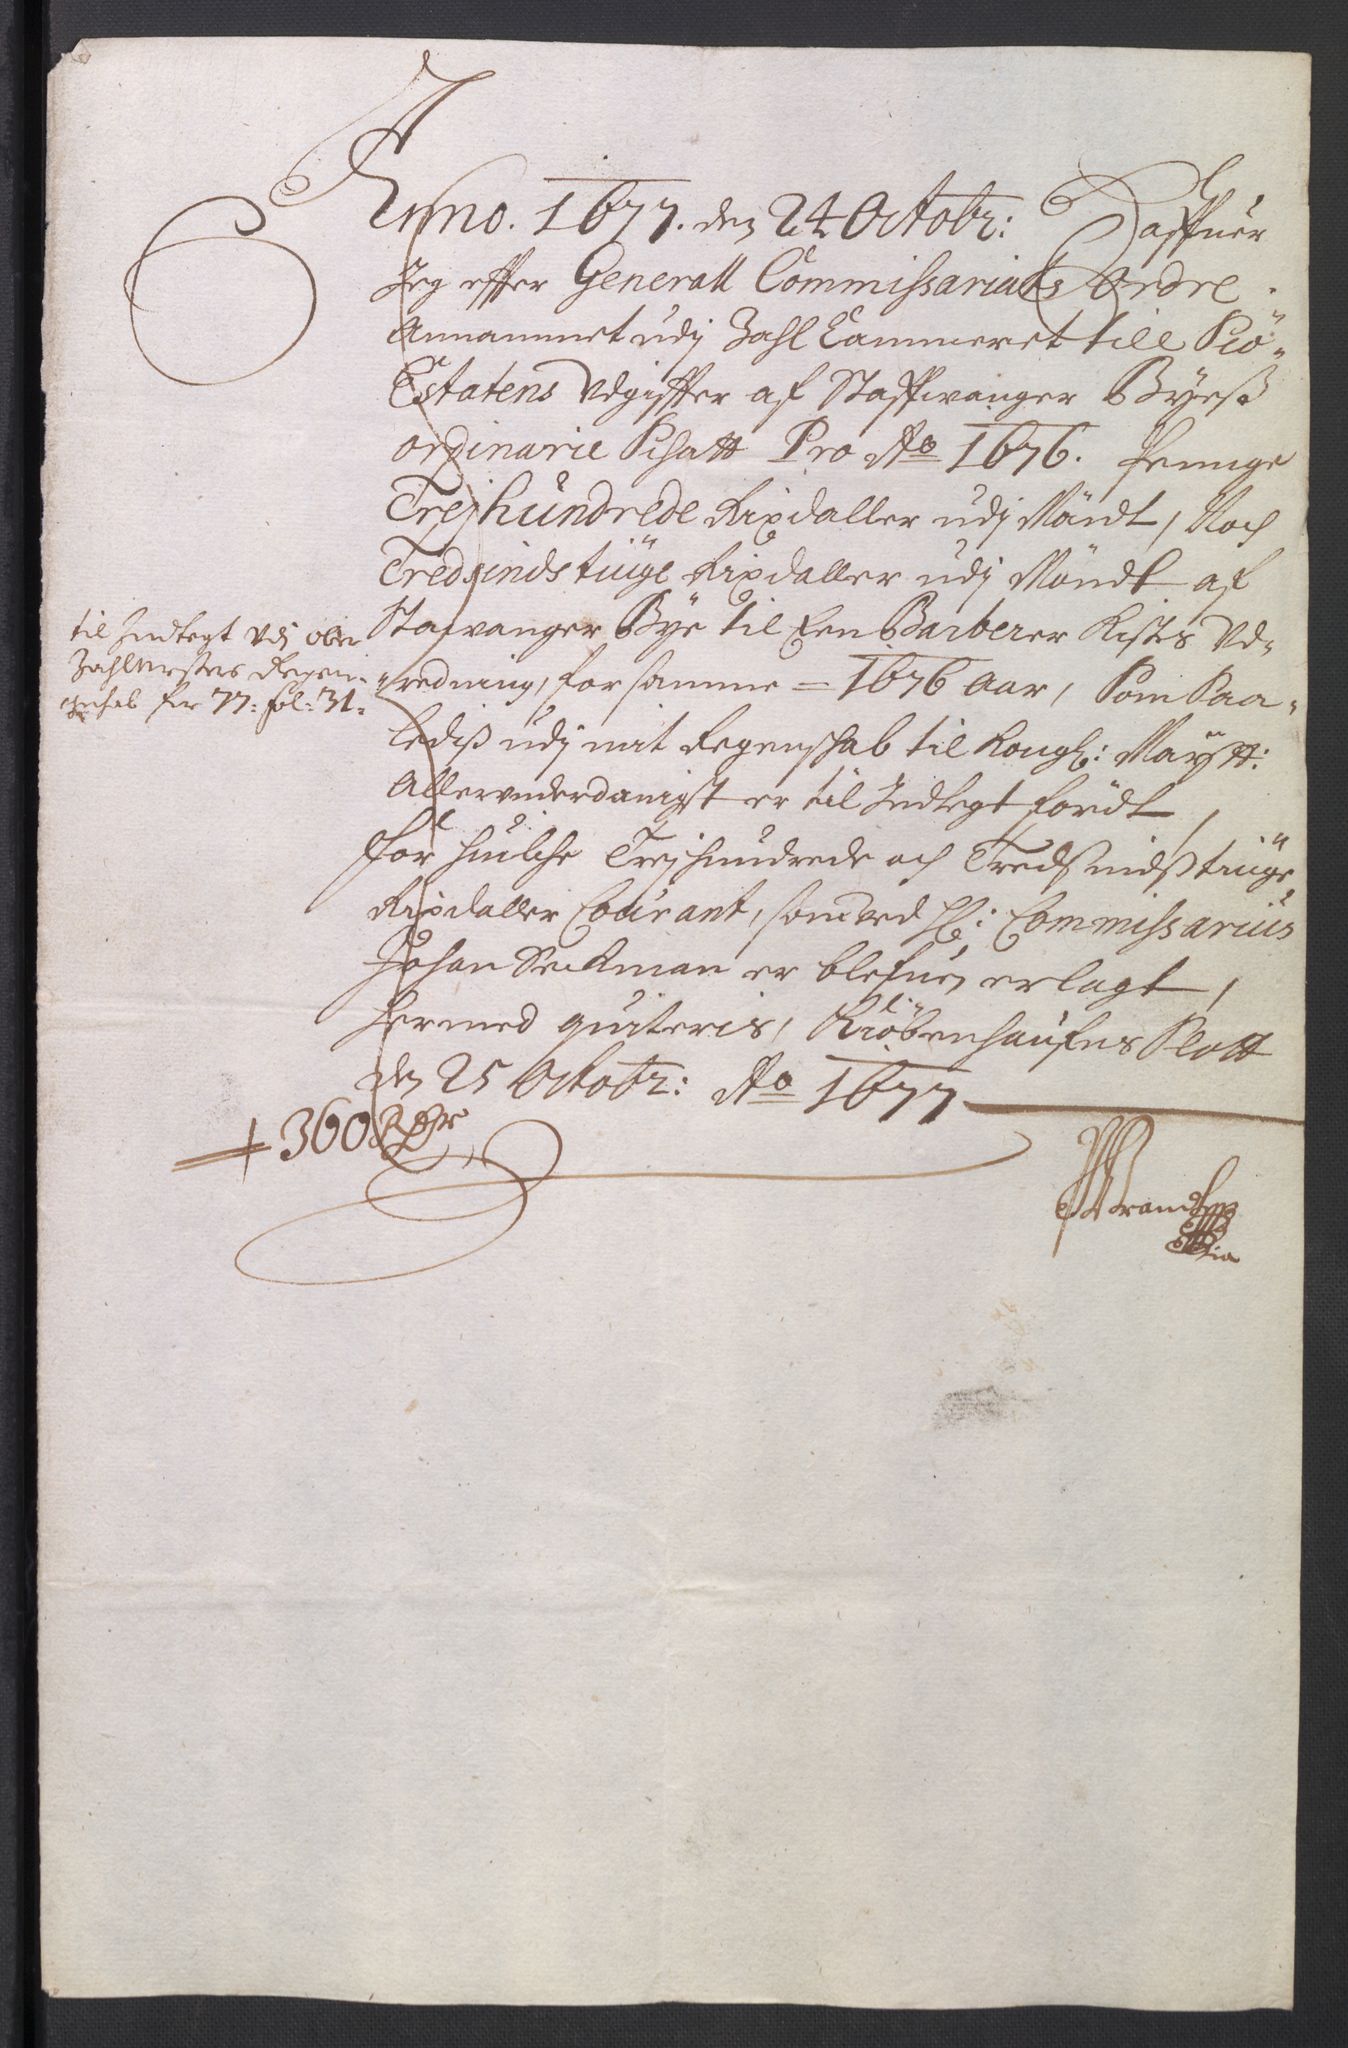 Anno. 1677. den 24 Octobr: Haffuer
Jeg effter Generall Commissariats Ordre
Annammet udj Zahl Cammeret till Siö-
Estatens Vdgiffter af Staffwanger Byeß
ordinarie Schatt Pro Ao 1676. Penge
Trejhundrede Rixdaller udj Möndt, Noch
Tredsindstiuge Rixdaller udj Möndt af
Stavanger Bye til Een Barberer Kistes Vd-
redning, for samme = 1676 Aar, Som Saa-
lediß udj mit Regenschab til Kongl: Maÿtt:
Allervnderdanigst er til Indtegt fördt,
for huilche Trejhundrede och Tredsindßtiuge
Rixdaller Courant, som ved Hr: Commissarius
Johan Seckman er blefuen erlagt,
hermed quiteris, Kiöbenhaufns Slott
den 25 Octobr: Ao 1677
til Indtegt Vdj ober
Zahlmesters Regen-
schab for 77: fol: 31:
360 Rdr